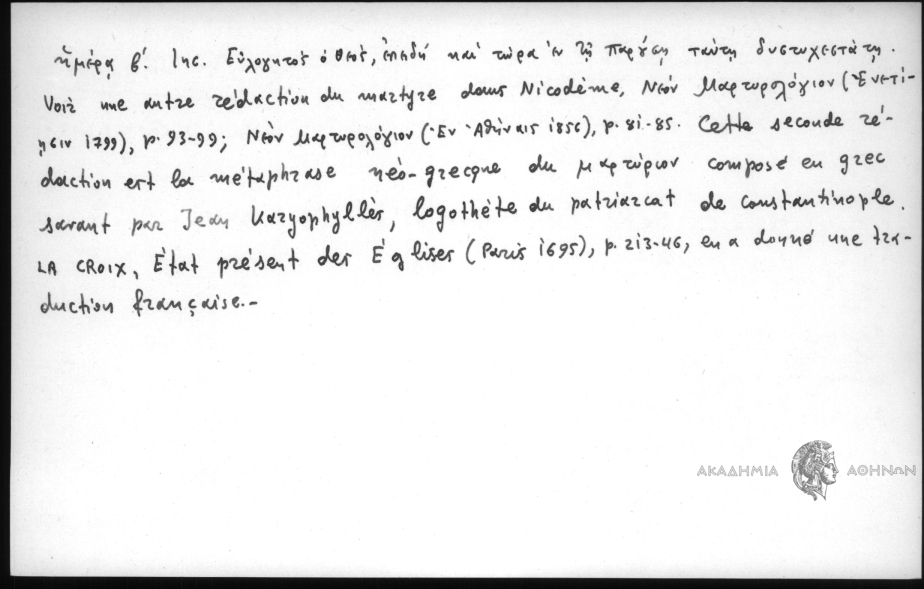 ἡμέρᾳ β΄. Inc. Εὐλογητὸς ὁ θεός, ἐπειδή καὶ τώρα ἐν τῇ παρούσῃ ταύτῃ δυστυχεστάτῃ.
Voir une autre rédaction du martyre dans Nicodème, Νέον Μαρτυρολόγιον (Ἐνετί-
ησιν 1799), p. 93-99; Νέον Μαρτυρολόγιον (Ἐν Ἀθήναις 1856), p. 81-85. Cette seconde ré-
daction est la métaphrase néo-grecque du μαρτύριον composé en grec
savant par Jean Karyophyllès, logothète du patriarcat de Constantinople.
LA CROIX, État présent des Églises (Paris 1695), p. 213-46, en a donné une tra-
duction française.-
ΑΚΑΔΗΜΙΑ ΑΘΗΝΩΝ